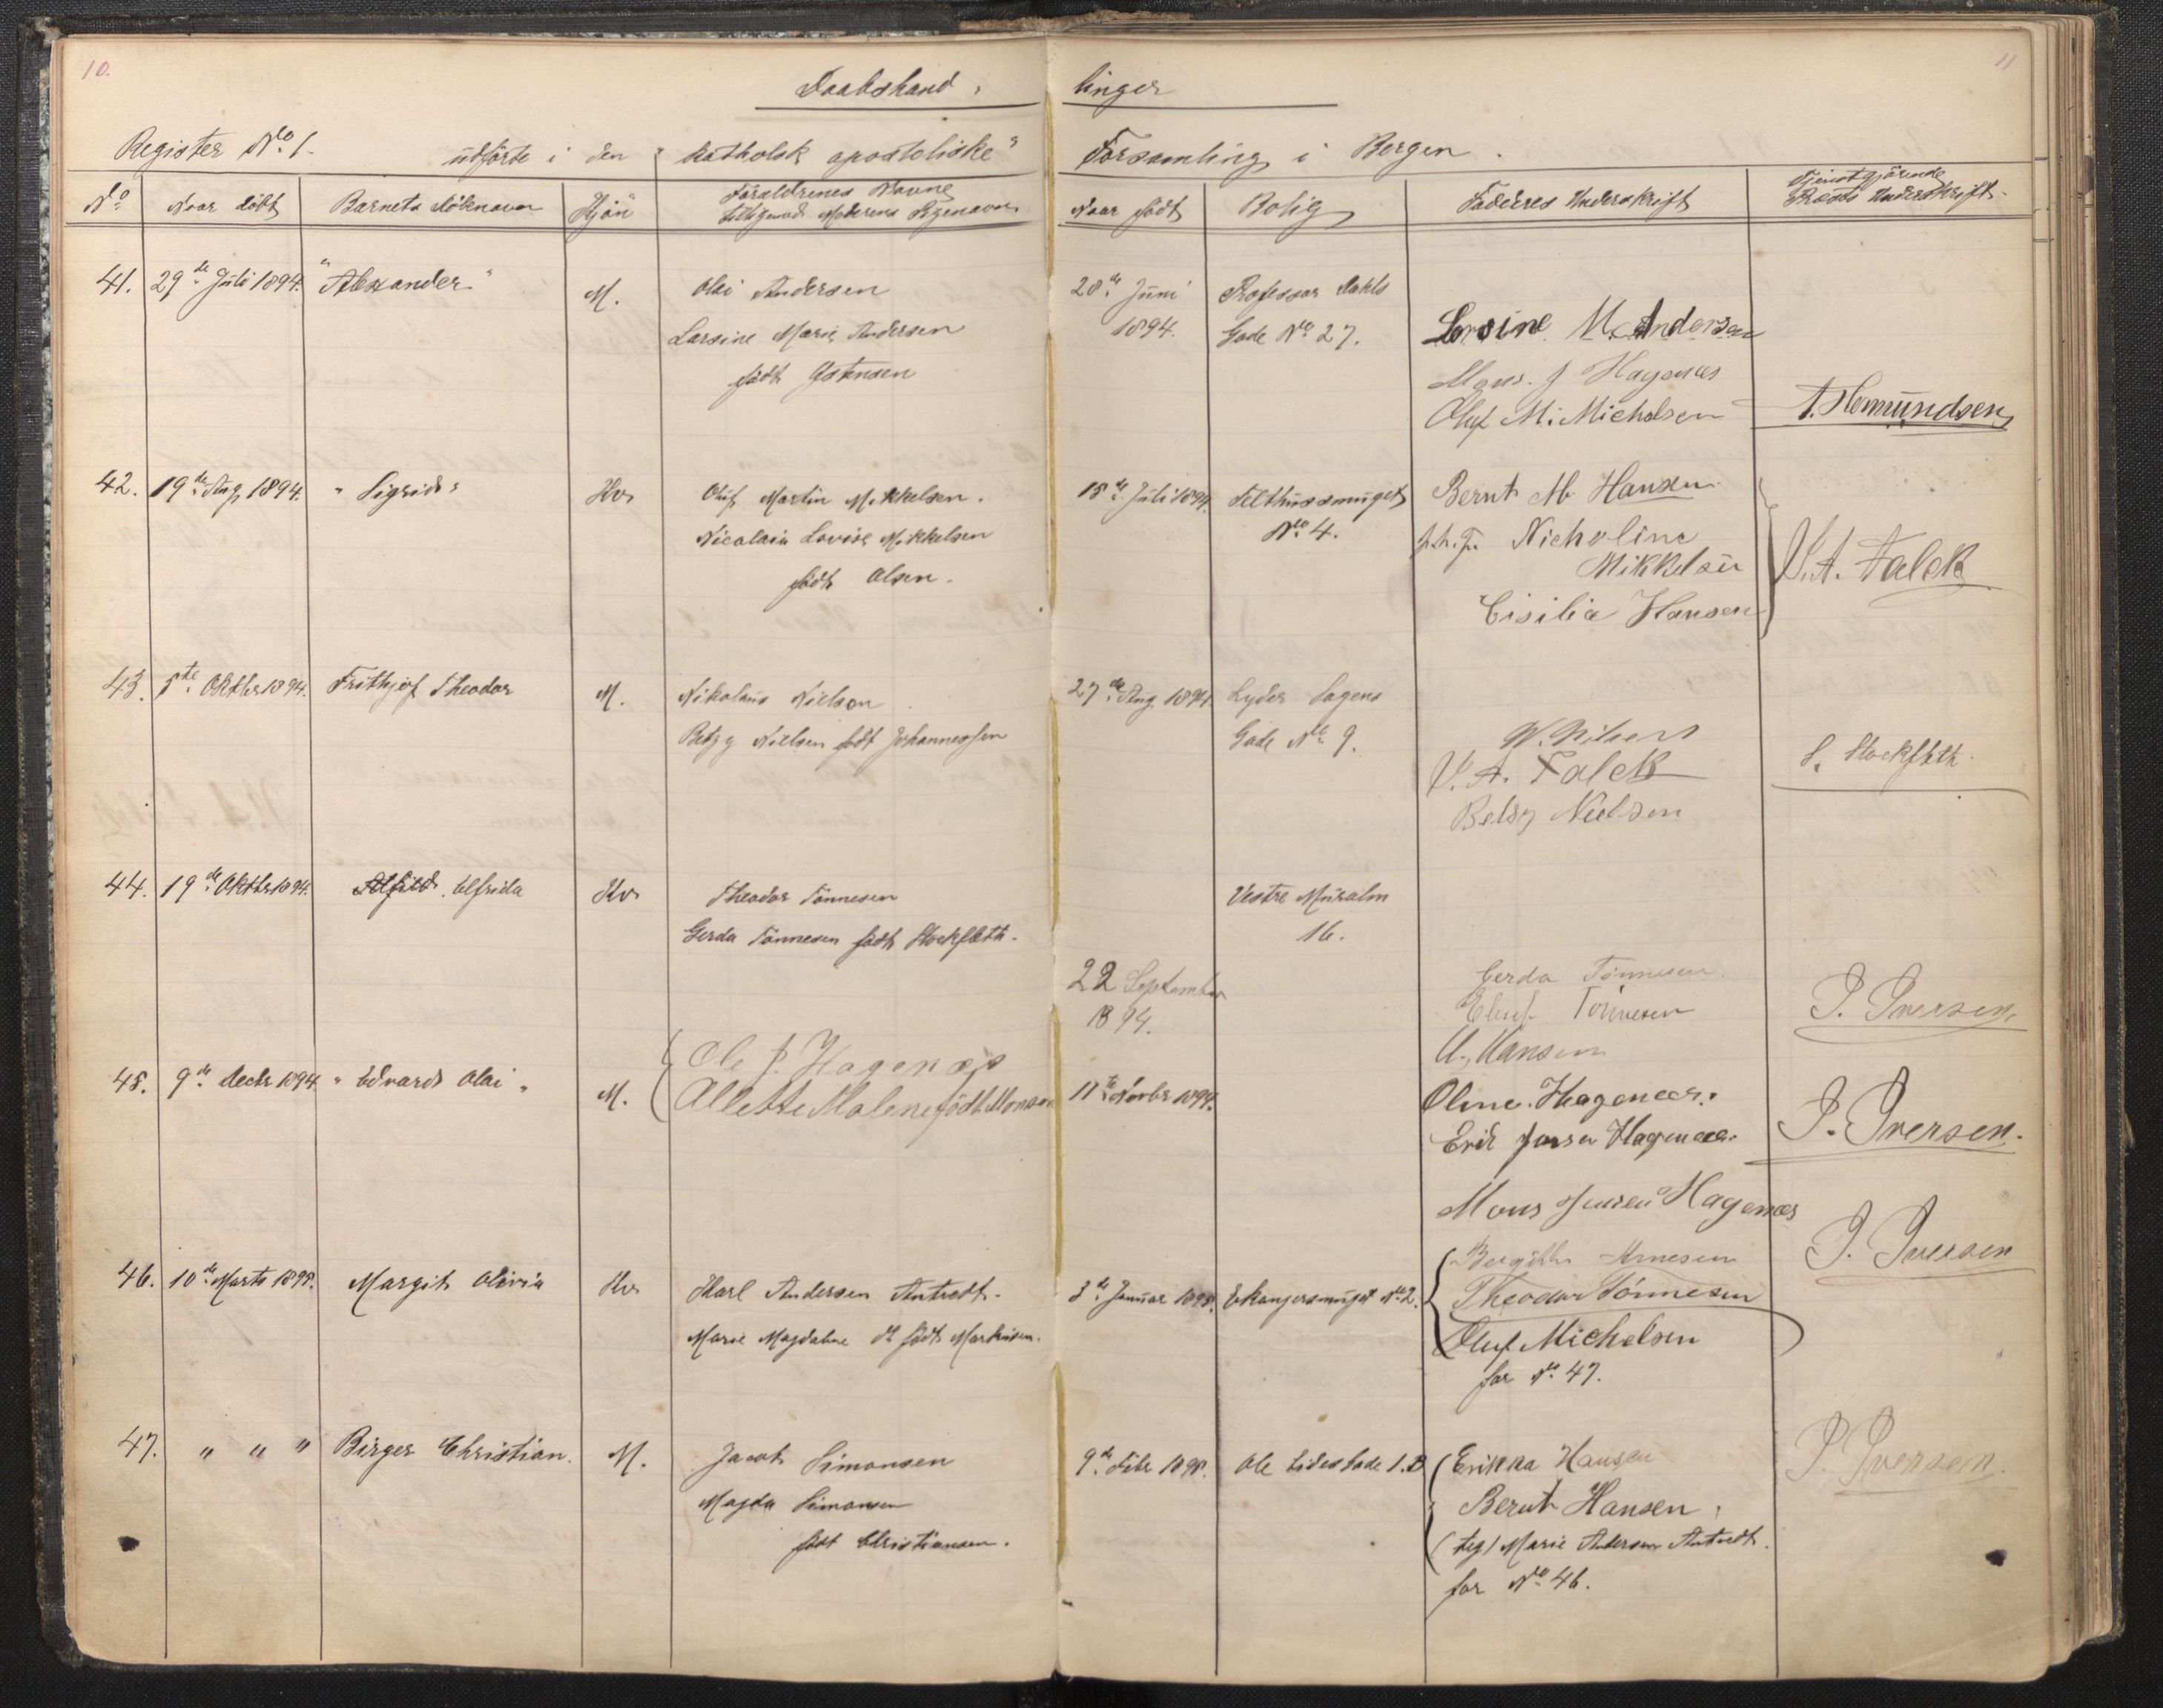 10.
11
Daabshand
linger
Register No 1.
udførte i den "katholsk apostoliske"
Forsamling i Bergen.
No
Naar døbt
Barnets døbenavn
Kjøn
Forældrenes Navne
tilligemed Moderens Pigenavn
Naar født
Bolig
Faderes Underskrift
Tjenstgjørende
Præsts Underskrift
41. 29de Juli 1894. "Alexander" M.
Olai Andersen
Larsine Marie Andersen
født
28de Juni
1894.
Professor Dahls
Gade No 27.
Larsine M. Andersen
Mons. J Hagenæs
Oluf M. Michelsen
A. Homundsen
42. 19de Aug. 1894. "Sigrid" Kv.
Oluf Martin Mikkelsen.
Nicolaia Lovise Mikkelsen
født Olsen.
15de Juli 1894.
Telthussmuget
No 4.
Bernt M. Hansen
Nicholine
Mikkelsen
Cisilia Hansen
V. A. Falck
43. 5te Oktbr 1894. Frithjof Theodor M.
Nikolaus Nielsen
Betzy Nielsen født Johannessen
27de Aug. 1894.
Lyder Sagens
Gade No 9.
N. Nilsen
V. A. Falck
Betsy Nielsen
S. Stockfleth
44. 19de Oktbr 1894. Alfild. Elfrida Kv.
Theodor Tönnesen
Gerda Tönnesen født Stockfleth.
22 September
1894.
Vestre Muralm
16.
Gerda Tönnesen.
Tönnesen
Hansen
P. Iversen.
45. 9de Decbr 1894. "Edvard Olai" M.
Ole J. Hagenæs
Allette Malene født Monsen
11te Novbr 1894.
Oline. Hagenæs.
Erik Jansen Hagenæs.
Mons Jansen Hagenæs
P. Iversen.
46. 10de Marts 1895. Margit Olivia Kv.
Karl Andersen Antvedt.
Marie Magdalene do født Markusen.
3de Januar 1895.
Ekangersmuget No 2.
Bergithe Arnesen
Theodor Tönnesen
Oluf Michelsen
for No 47.
P. Iversen
47. " " " Birger Christian. M.
Jacob Simonsen
Magda Simonsen
født Christiansen.
9de Febr 1895.
Ole 1. B
Erikka Hansen
Bernt Hansen
(teg) Marie Andersen Antvedt.
for No 46.
P. Iversen.